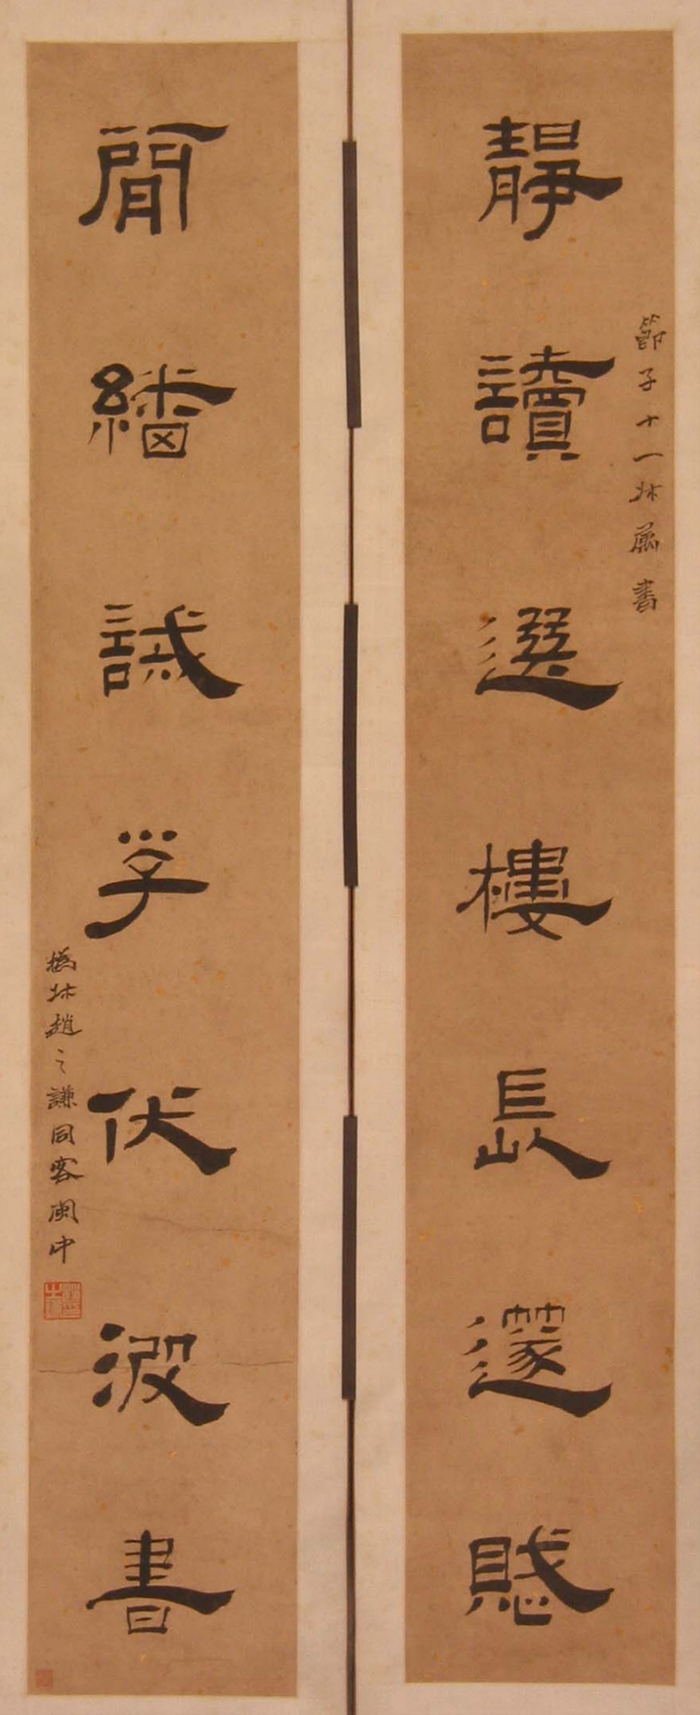 靜讀選樓長篴賦
節子十一叔屬書
閒繙誡子伏波書
撝叔趙之謙同客閩中